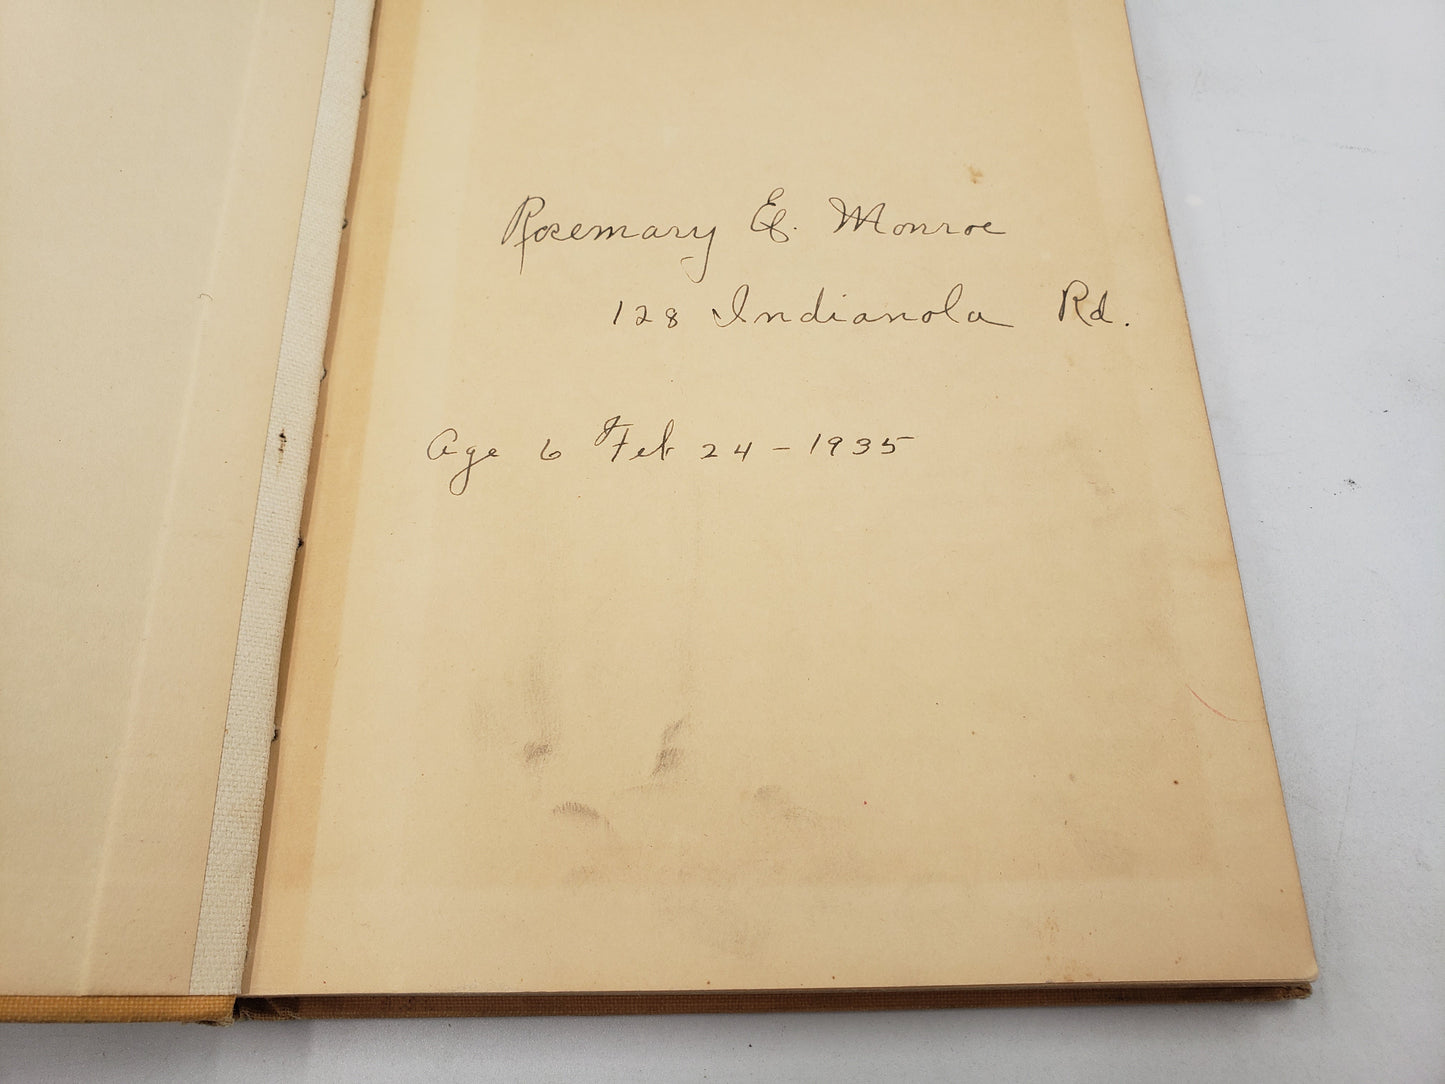 Rosemary E. Monroe
128 Indianola Rd.
Age 6 Feb 24 - 1935